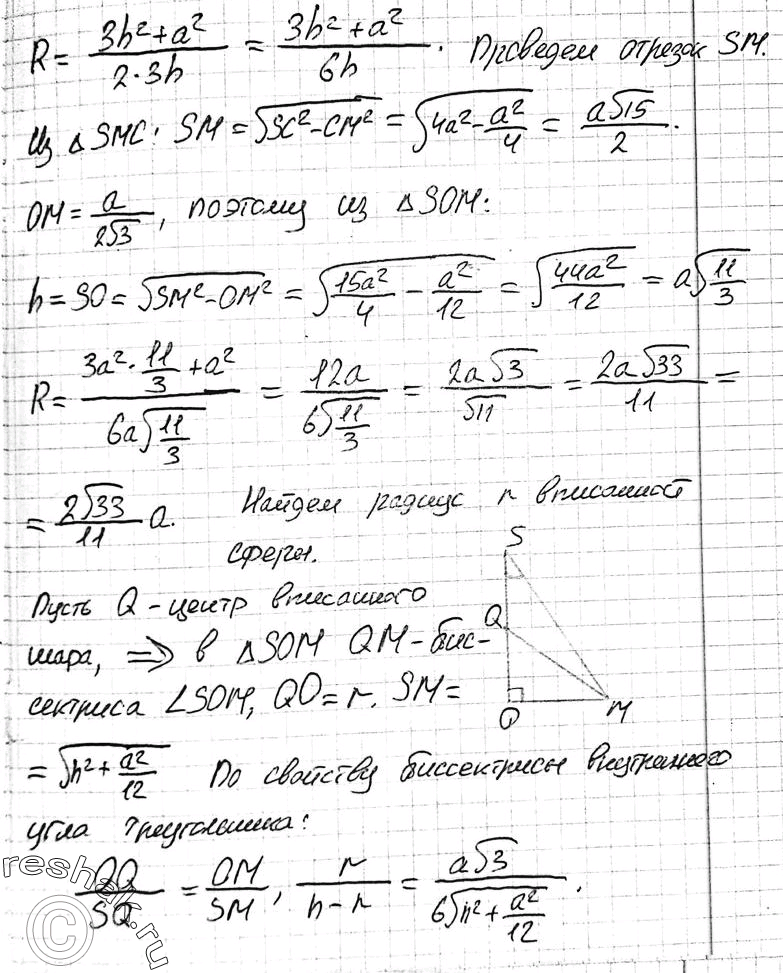 R = (3h² + a²)/(2·3h) = (3h² + a²)/(6h). Проведем отрезок SM.
Из △SMC: SM = √(SC² − CM²) = √(4a² − a²/4) = a√15/2.
OM = a/(2√3), поэтому из △SOM:
h = SO = √(SM² − OM²) = √(15a²/4 − a²/12) = √(44a²/12) = a√(11/3)
R = (3a²·11/3 + a²)/(6a√(11/3)) = 12a/(6√(11/3)) = 2a√3/√11 = 2a√33/11 =
= 2√33/11 a. Найдем радиус r вписанной
сферы.
S
Пусть Q - центр вписанного
Q
шара, ⟹ в △SOM QM - бис-
сектриса ∠SOM, QO = r. SM =
O M
= √(h² + a²/12) По свойству биссектрисы внутреннего
угла треугольника:
OQ/SQ = OM/SM, r/(h − r) = a√3/(6√(h² + a²/12)).
reshak.ru
©